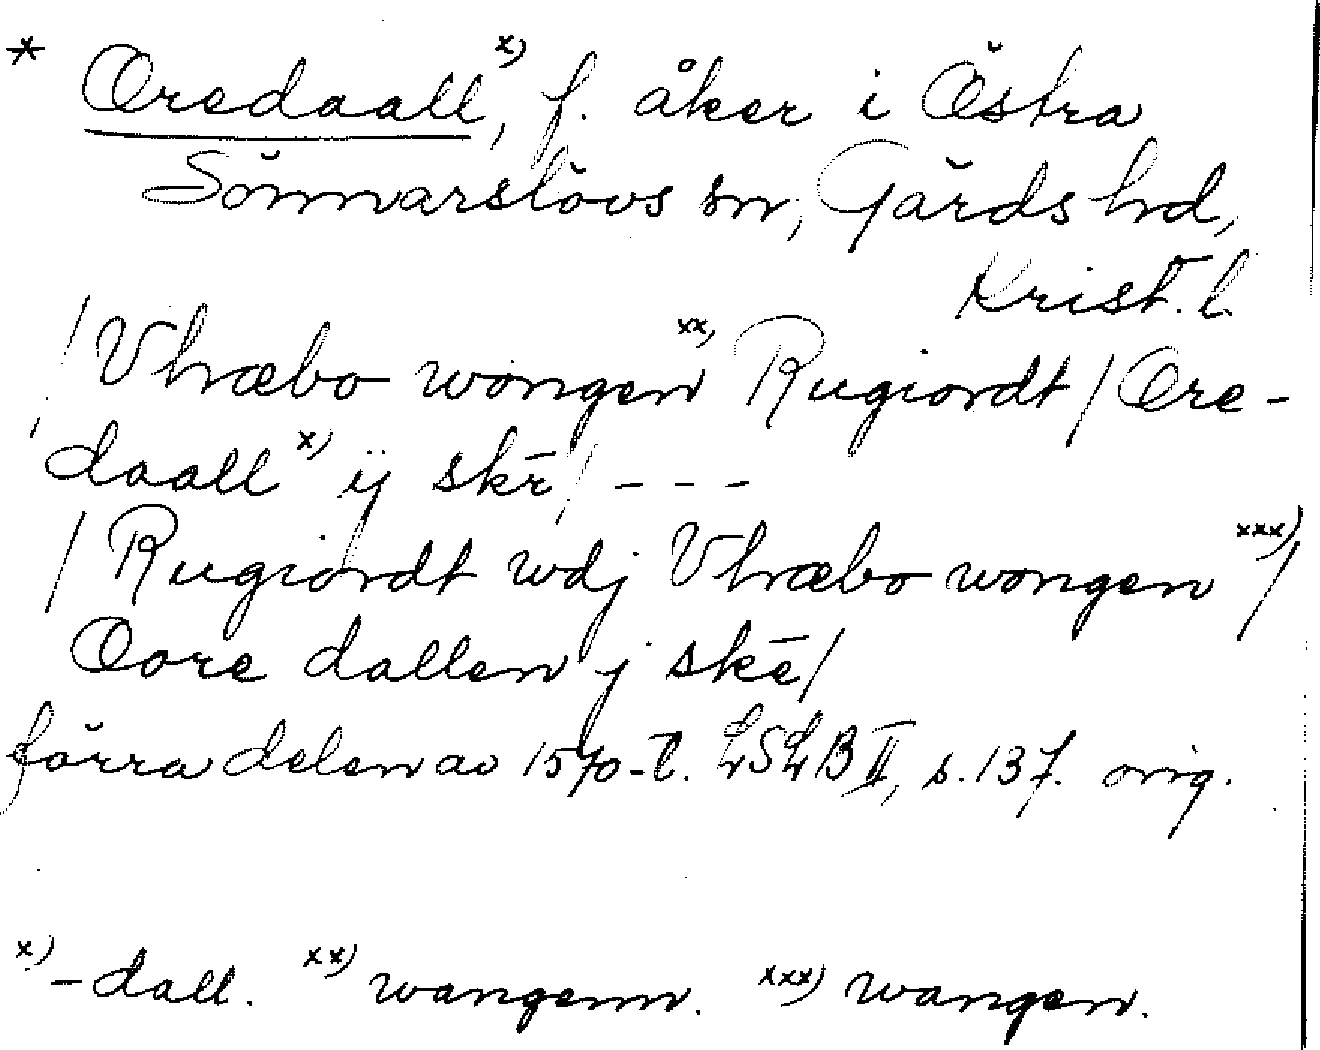 * Oredaall x), f. åker i Östra
Sönnarslövs sn, Gärds hd,
Krist. l.
/ Vhræbo wongen xx) Rugiordt / Ore-
daall x) ÿ skē / - - -
/ Rugiordt wdj Vhræbo wongen xxx) /
Oore dallen j skē /
förra delen av 1570-t. LSLB II, s. 137. orig.
x) -dall. xx) wangenn. xxx) wangen.